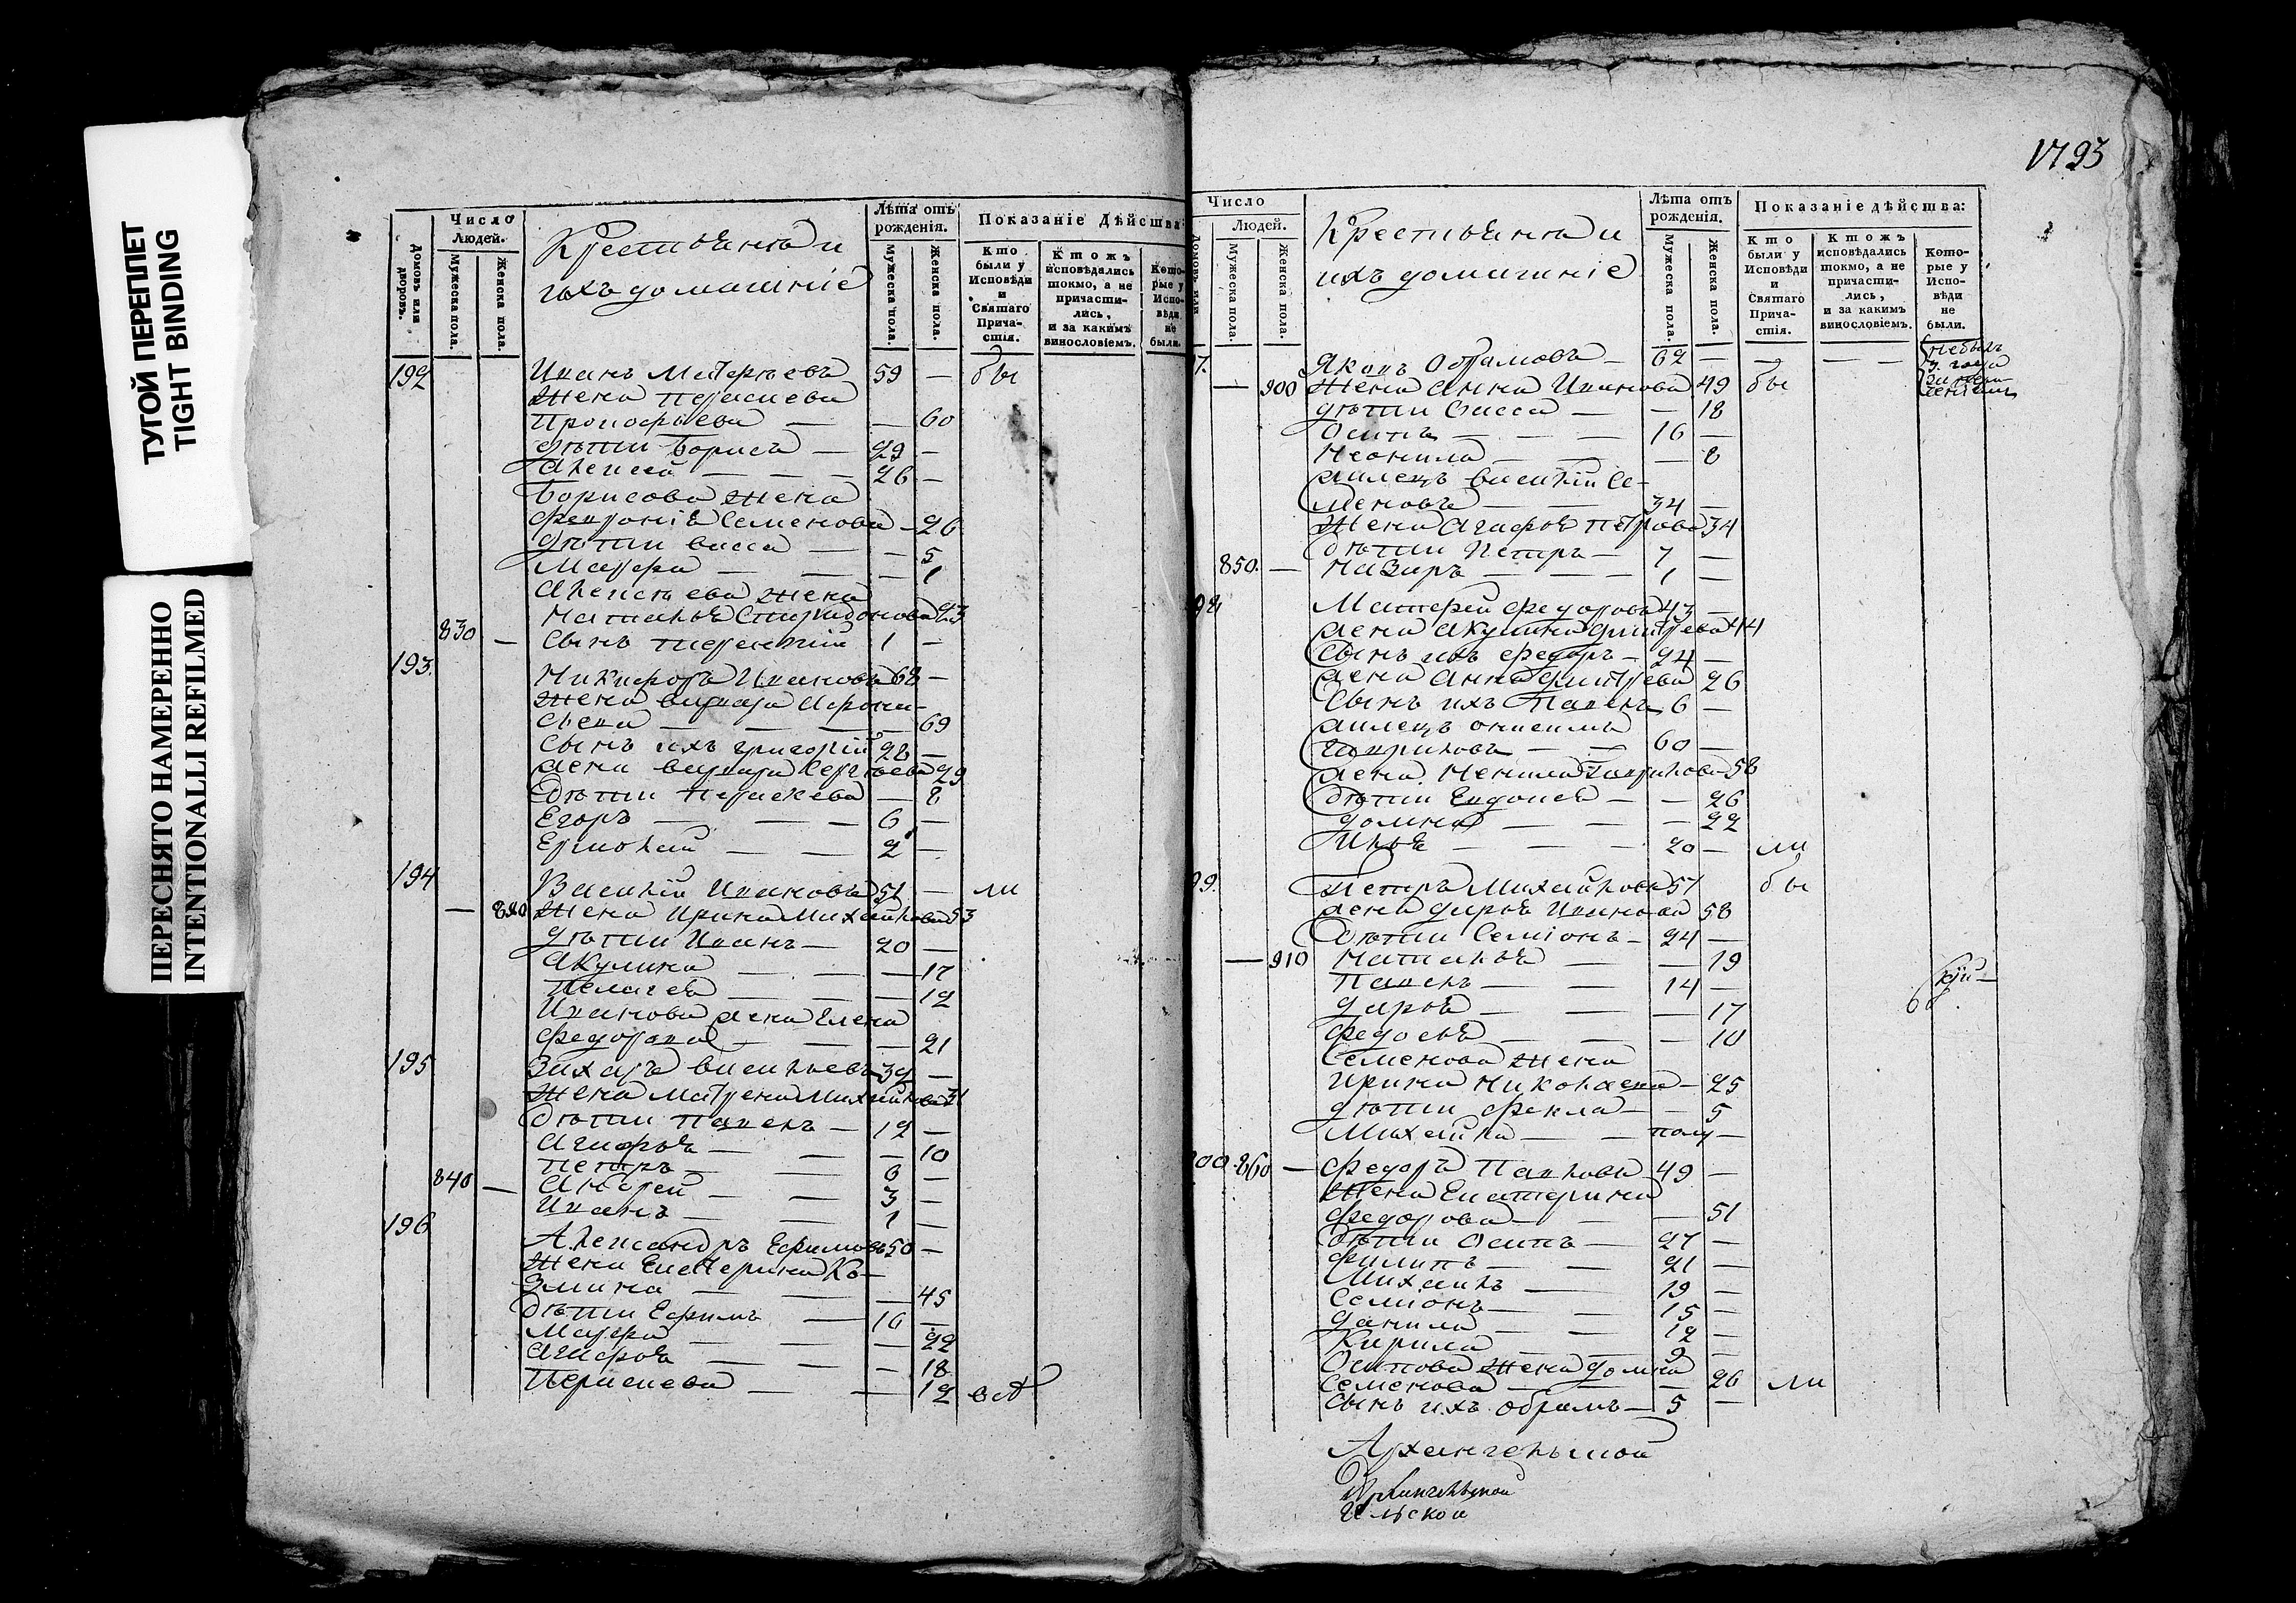 ТУГОЙ ПЕРЕПЛЕТ
TIGHT BINDING
ПЕРЕСНЯТО НАМЕРЕННО
INTENTIONALLI REFILMED
Домовъ или дворовъ.
Число
Людей.
Мужеска пола.
Женска пола.
Крестьяна и
ихъ домашнiе
Лѣта отъ рожденiя.
Мужеска пола.
Женска пола.
Показанiе Дѣйства
Кто были у Исповѣди и Святаго Прича-стiя.
Ктожъ исповѣдались токмо, а не причасти-лись, и за какимъ винословiемъ.
Кото-рые у Испо-вѣди не были.
192 Иванъ 59 — бы
Жена
Прокофьева — — 60
дѣтии Борисъ — 29 —
Алексей — — — 26 —
Борисова жена
Февронiя Семенова — 26
дѣтии Васса — — 5
Марфа — — — 1
Алексѣева жена
Наталья Спиридонова 23
830 — Сынъ Терентий 1 —
193. Никифоръ Ивановъ 68 —
Жена Варвара
— — — 69
Сынъ ихъ Григорiй 28 —
жена Варвара Сергѣева 29
Дѣтии Параскева — 8
Егоръ — — — 6 —
Ермолай — — 2 —
194 Василiй Ивановъ 51 — ли
— Жена Ирина Михайлова 53
дѣтии Иванъ — 20 —
Акулина — — — 17
Пелагея — — — 12
Иванова жена Елена
Федорова — — — 21
195 Захаръ Васильевъ 32 —
Жена Матрена Михайлова 31
Дѣтии Павелъ — 12 —
Агафья — — — 10
Петръ — — 6 —
840 — Андрей — — 3 —
Иванъ — — 1 —
196 Александръ Ефимовъ 50 —
Жена Екатерина Ко-
змина — — — 45
Дѣтии Ефимъ — 16 —
Марфа — — — 22
Агафья — — — 18
Параскева — — 12
1793
Число
Людей.
Мужеска пола.
Женска пола.
Крестьяна и
ихъ домашнiе
Лѣта отъ рожденiя.
Мужеска пола.
Женска пола.
Показанiе дѣйства:
Кто были у Исповѣди и Святаго Прича-стiя.
Ктожъ исповѣдались токмо, а не причасти-лись, и за какимъ винословiемъ.
Кото-рые у Испо-вѣди не были.
7. Яковъ Обрамовъ — 62 — — — — небылъ
— 900 Жена Анна Иванова 49 бы
дѣтии Васса — — 18
Осипъ — — — 16 —
Неонила — — — 8
Василiй Се-
меновъ — — 34 —
Жена Агафья Петрова 34
Дѣтии Петръ — 7 —
850. — Назаръ — — — 1 —
98 Матфей Федоровъ 43 —
жена Акулина Дмитрева 44
Сынъ ихъ Федоръ — 24 —
жена Анна Дмитрева 26
Сынъ ихъ Павелъ 6 —
Гавриловъ — — 60 —
жена Гаврилова 58
Дѣтии Евдокея — — 26
Домна — — — 22
Илья — — — 20 — ли
99. Петръ Михайловъ 57 бы
жена Дарья Иванова 58
Дѣтии Семiонъ — 24 —
— 910 Наталья — — 19
Павелъ — — 14 —
Дарья — — — 17
Федосья — — — 10
Семенова жена
Ирина Николаева — 25
дѣтии Фекла — — 5
Михайла — — полу —
200. 860 — Федоръ Павловъ 49 —
Жена Екатерина
Федорова — — — 51
Дѣтии Осипъ — 27 —
Филипъ — — 21 —
Михаилъ — 19 —
Семiонъ — — 15 —
Данила — — 12 —
Кирила — 9 —
Осипова жена Домна
Семенова — — — 26 ли
Сынъ ихъ Обрамъ — 5 —
Архангельской